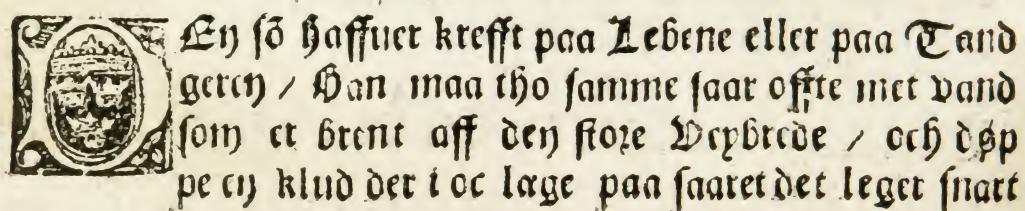 DEn sõ haffuer krefft paa Lebene eller paa Tand
geren / Han maa tho samme saar offte met vand
som er brent aff den store Veybrede / och døp
pe en klud der i oc læge paa saaret det leger snart